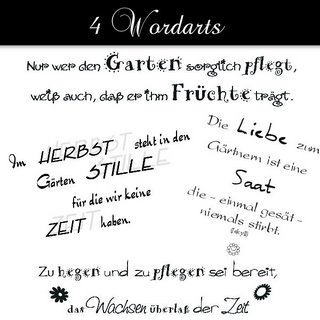 4 Wordarts
Nur wer den Garten sorglich pflegt,
weiß auch, daß er ihm Früchte trägt.
Im HERBST steht in den
Gärten STILLE
für die wir keine
ZEIT haben.
Die Liebe zum
Gärtnern ist eine
Saat
die - einmal gesät -
niemals stirbt.
Zu hegen und zu pflegen sei bereit,
das Wachsen überlaß der Zeit